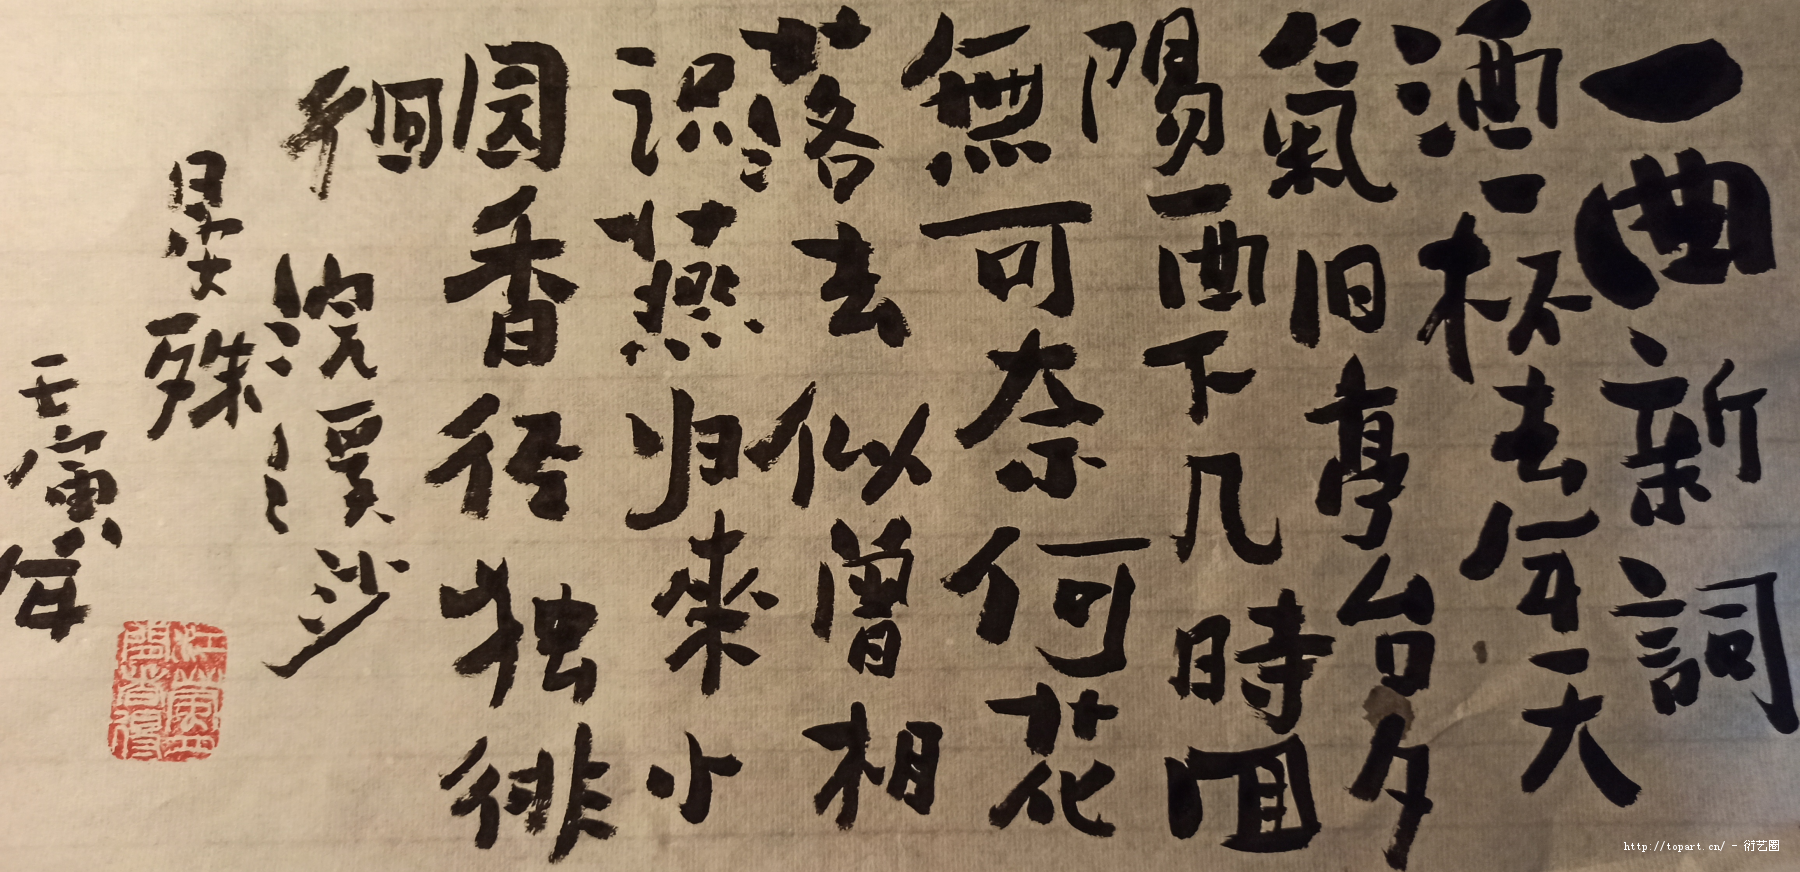 一曲新詞
酒一杯去年天
氣旧亭台夕
陽西下几時回
無可奈何花
落去似曾相
识燕归來小
园香径独徘
徊
浣溪沙
晏殊
壬寅年
http://topart.cn/ - 衍艺圈